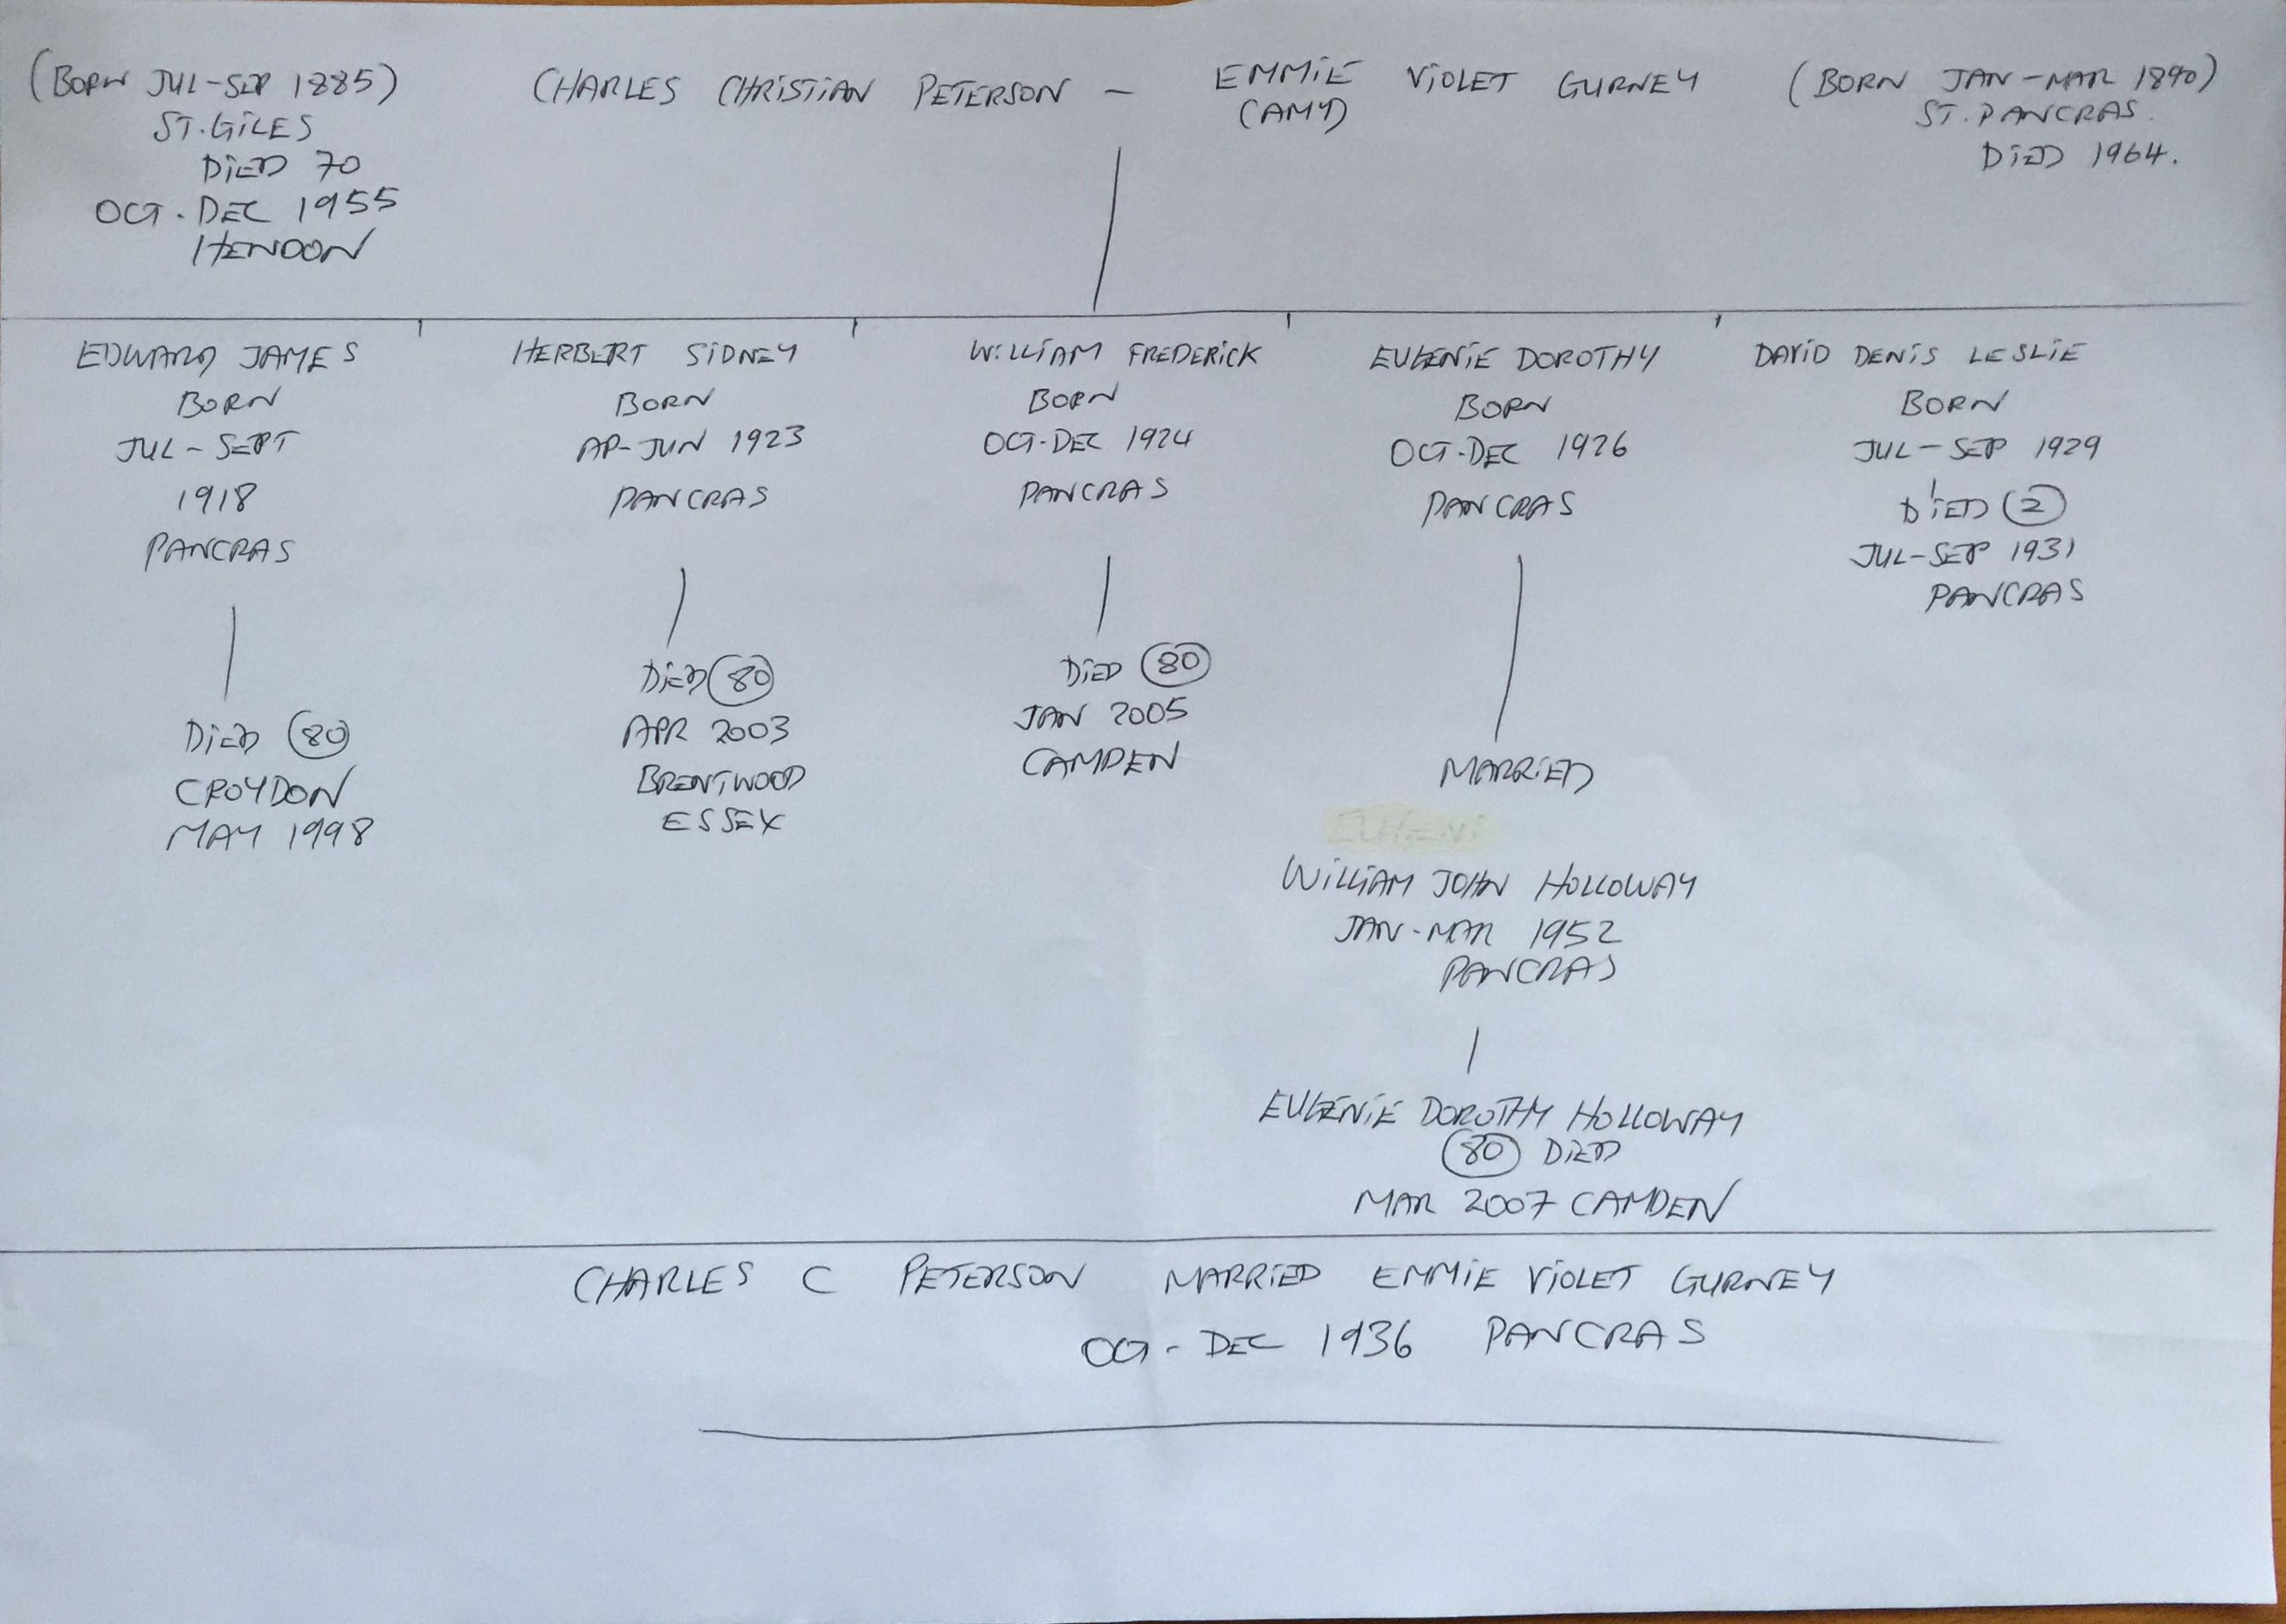 (BORN JUL-SEP 1885)
ST. GILES
DIED 70
OCT. DEC 1955
HENDON
CHARLES CHRISTIAN PETERSON - EMMIE VIOLET GURNEY
(AMY)
(BORN JAN-MAR 1890)
ST. PANCRAS.
DIED 1964.
EDWARD JAMES
BORN
JUL-SEPT
1918
PANCRAS
DIED 80
CROYDON
MAY 1998
HERBERT SIDNEY
BORN
AP-JUN 1923
PANCRAS
DIED 80
APR 2003
BRENTWOOD
ESSEX
WILLIAM FREDERICK
BORN
OCT-DEC 1924
PANCRAS
DIED 80
JAN 2005
CAMDEN
EUGENIE DOROTHY
BORN
OCT-DEC 1926
PANCRAS
MARRIED
WILLIAM JOHN HOLLOWAY
JAN-MAR 1952
PANCRAS
EUGENIE DOROTHY HOLLOWAY
80 DIED
MAR 2007 CAMDEN
DAVID DENIS LESLIE
BORN
JUL-SEP 1929
DIED 2
JUL-SEP 1931
PANCRAS
CHARLES C PETERSON MARRIED EMMIE VIOLET GURNEY
OCT-DEC 1936 PANCRAS